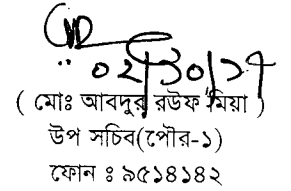 ০২/১০/১৭
( মোঃ আবদুর রউফ মিয়া )
উপ সচিব(পৌর-১)
ফোন ঃ ৯৫১৪১৪২